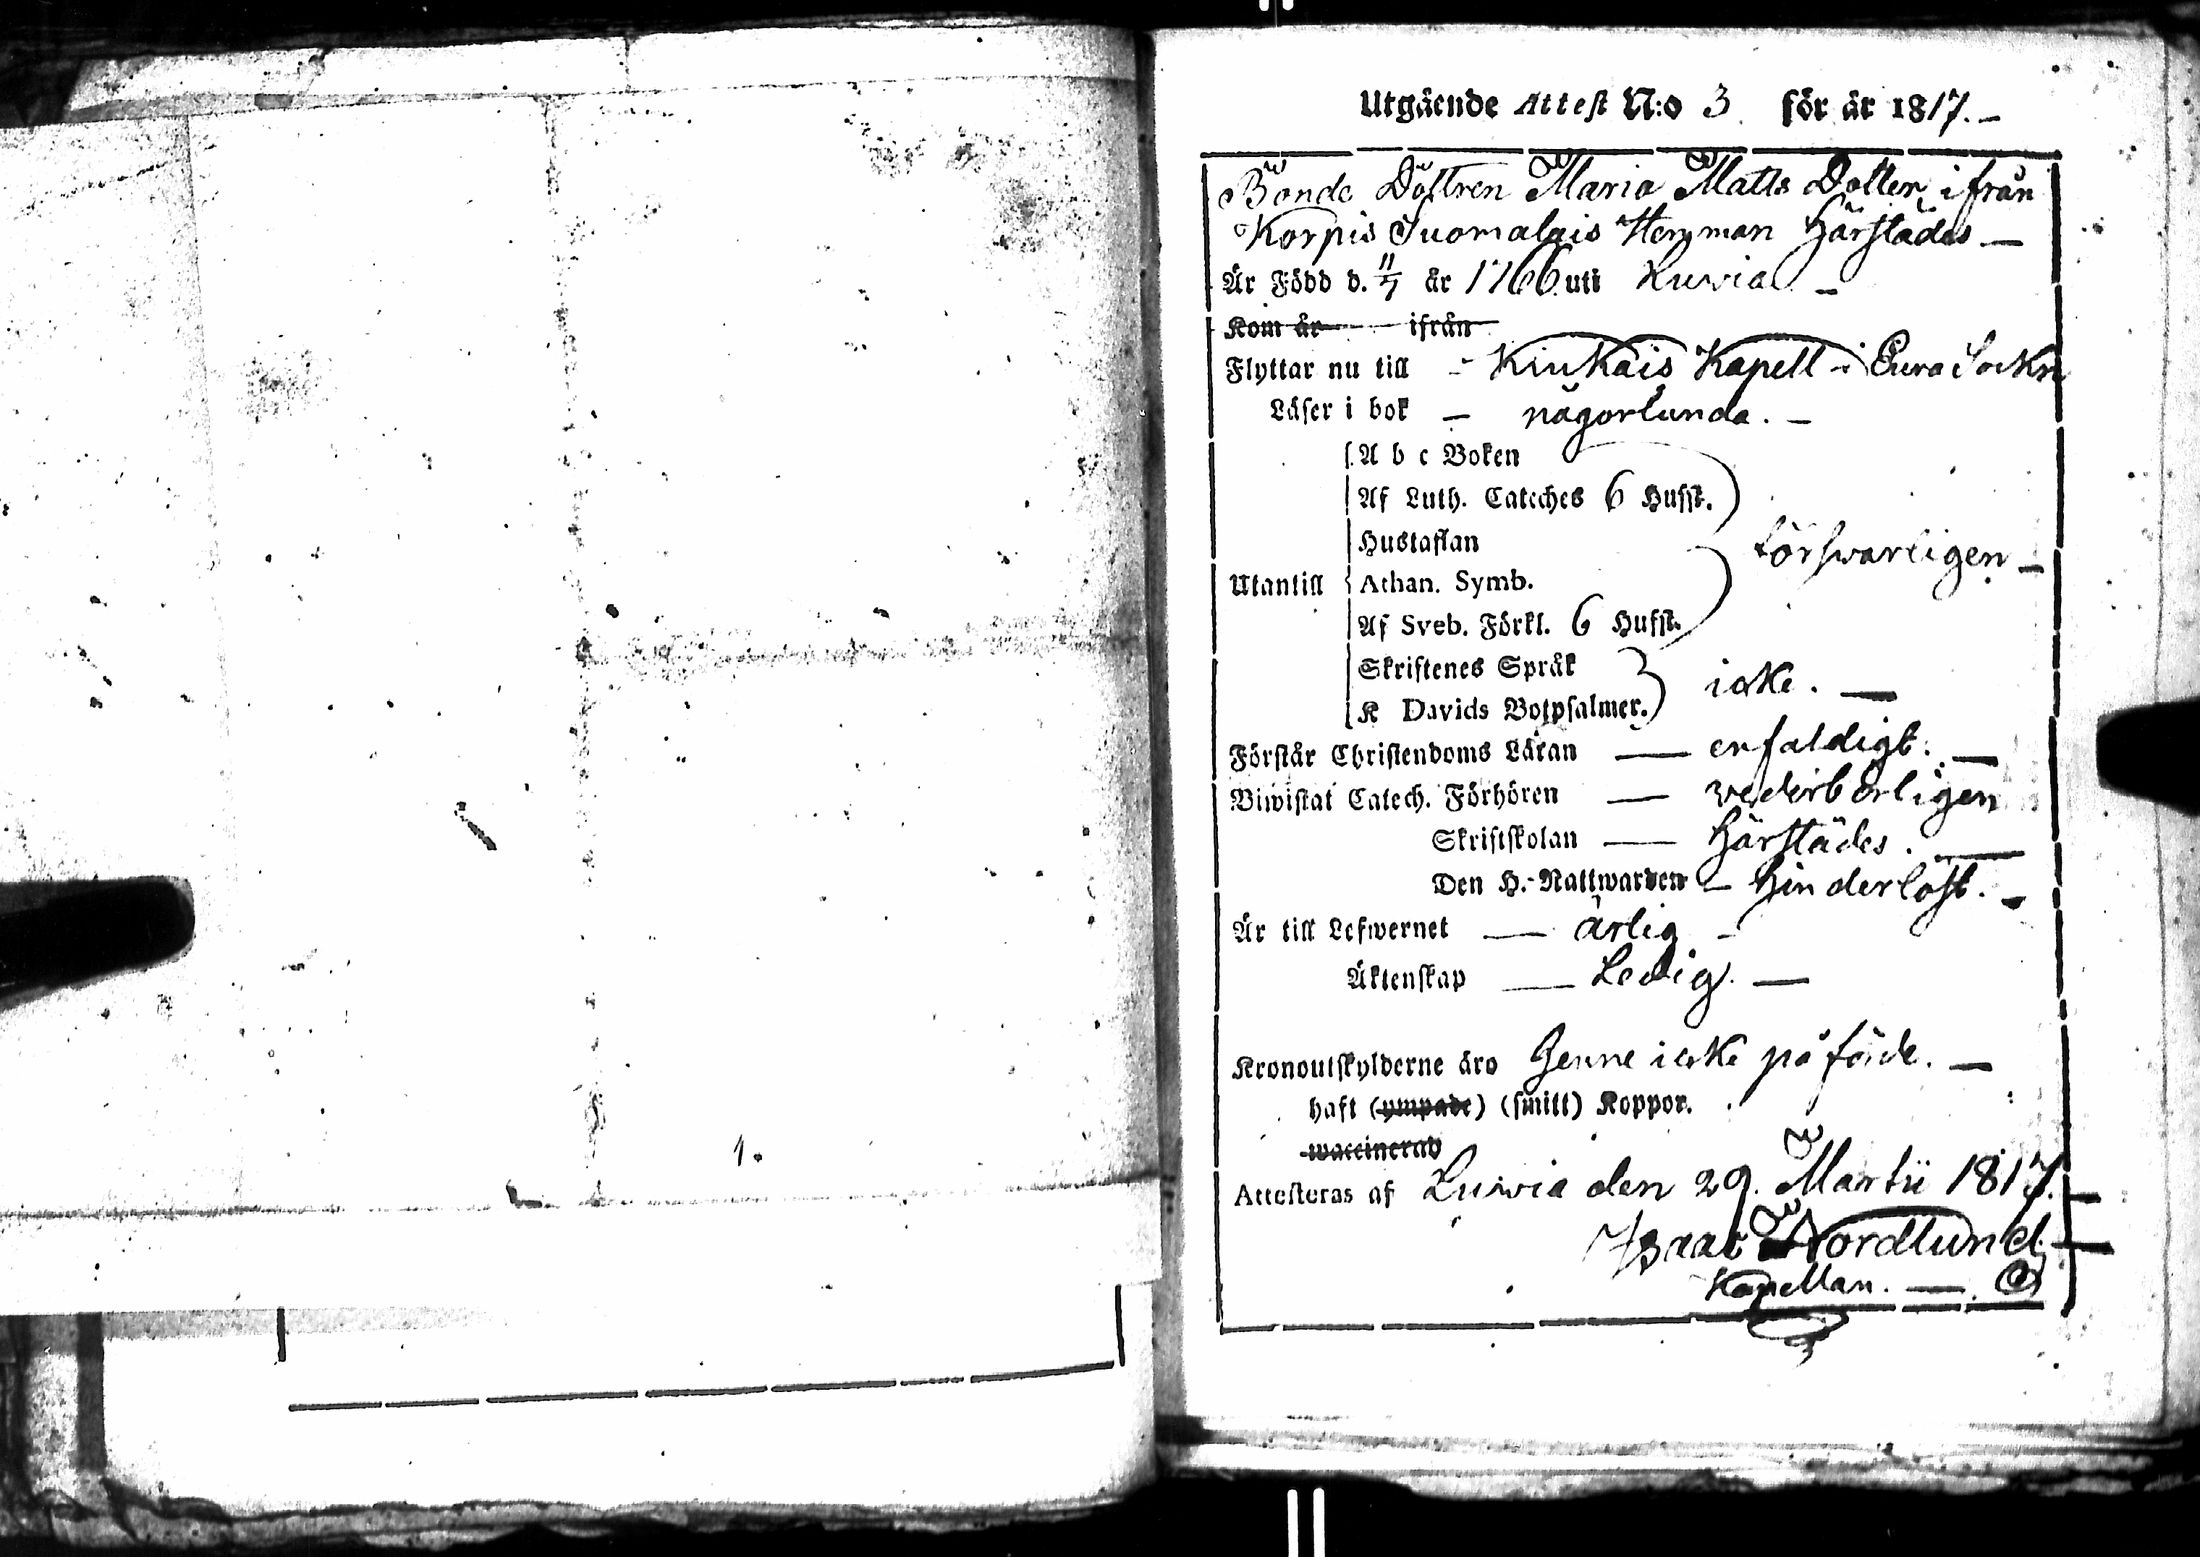 1.
Utgående Attest N:o 3 för år 1817.
Bonde Dottren Maria Matts Dotter ifrån
Korpis Suomalais Hemman härstädes
Är Född d. 11/7 år 1766 uti Luvia
Kom år ifrån
Flyttar nu till Kiukais Kapell i Eura Sockn
Läser i bok någorlunda.
A b c Boken
Af Luth. Cateches 6 Hufst.
Hustaflan
försvarligen
Utantill Athan. Symb.
Af Sveb. Förkl. 6 Hufst.
Skriftenes Språk
icke.
K Davids Botpsalmer.
Förstår Christendoms Läran enfaldigt.
Biwistat Catech. Förhören vederbörligen
Skriftskolan härstädes.
Den H. Nattwarden hinderlöst.
Är till Lefwernet ärlig
Äktenskap Ledig.
Kronoutskylderne äro henne icke påförde.
haft (ympade) (smitt) Koppor.
waccinerad
Attesteras af Luvia den 29. Martii 1817.
Isaac Nordlund
Kapellan.